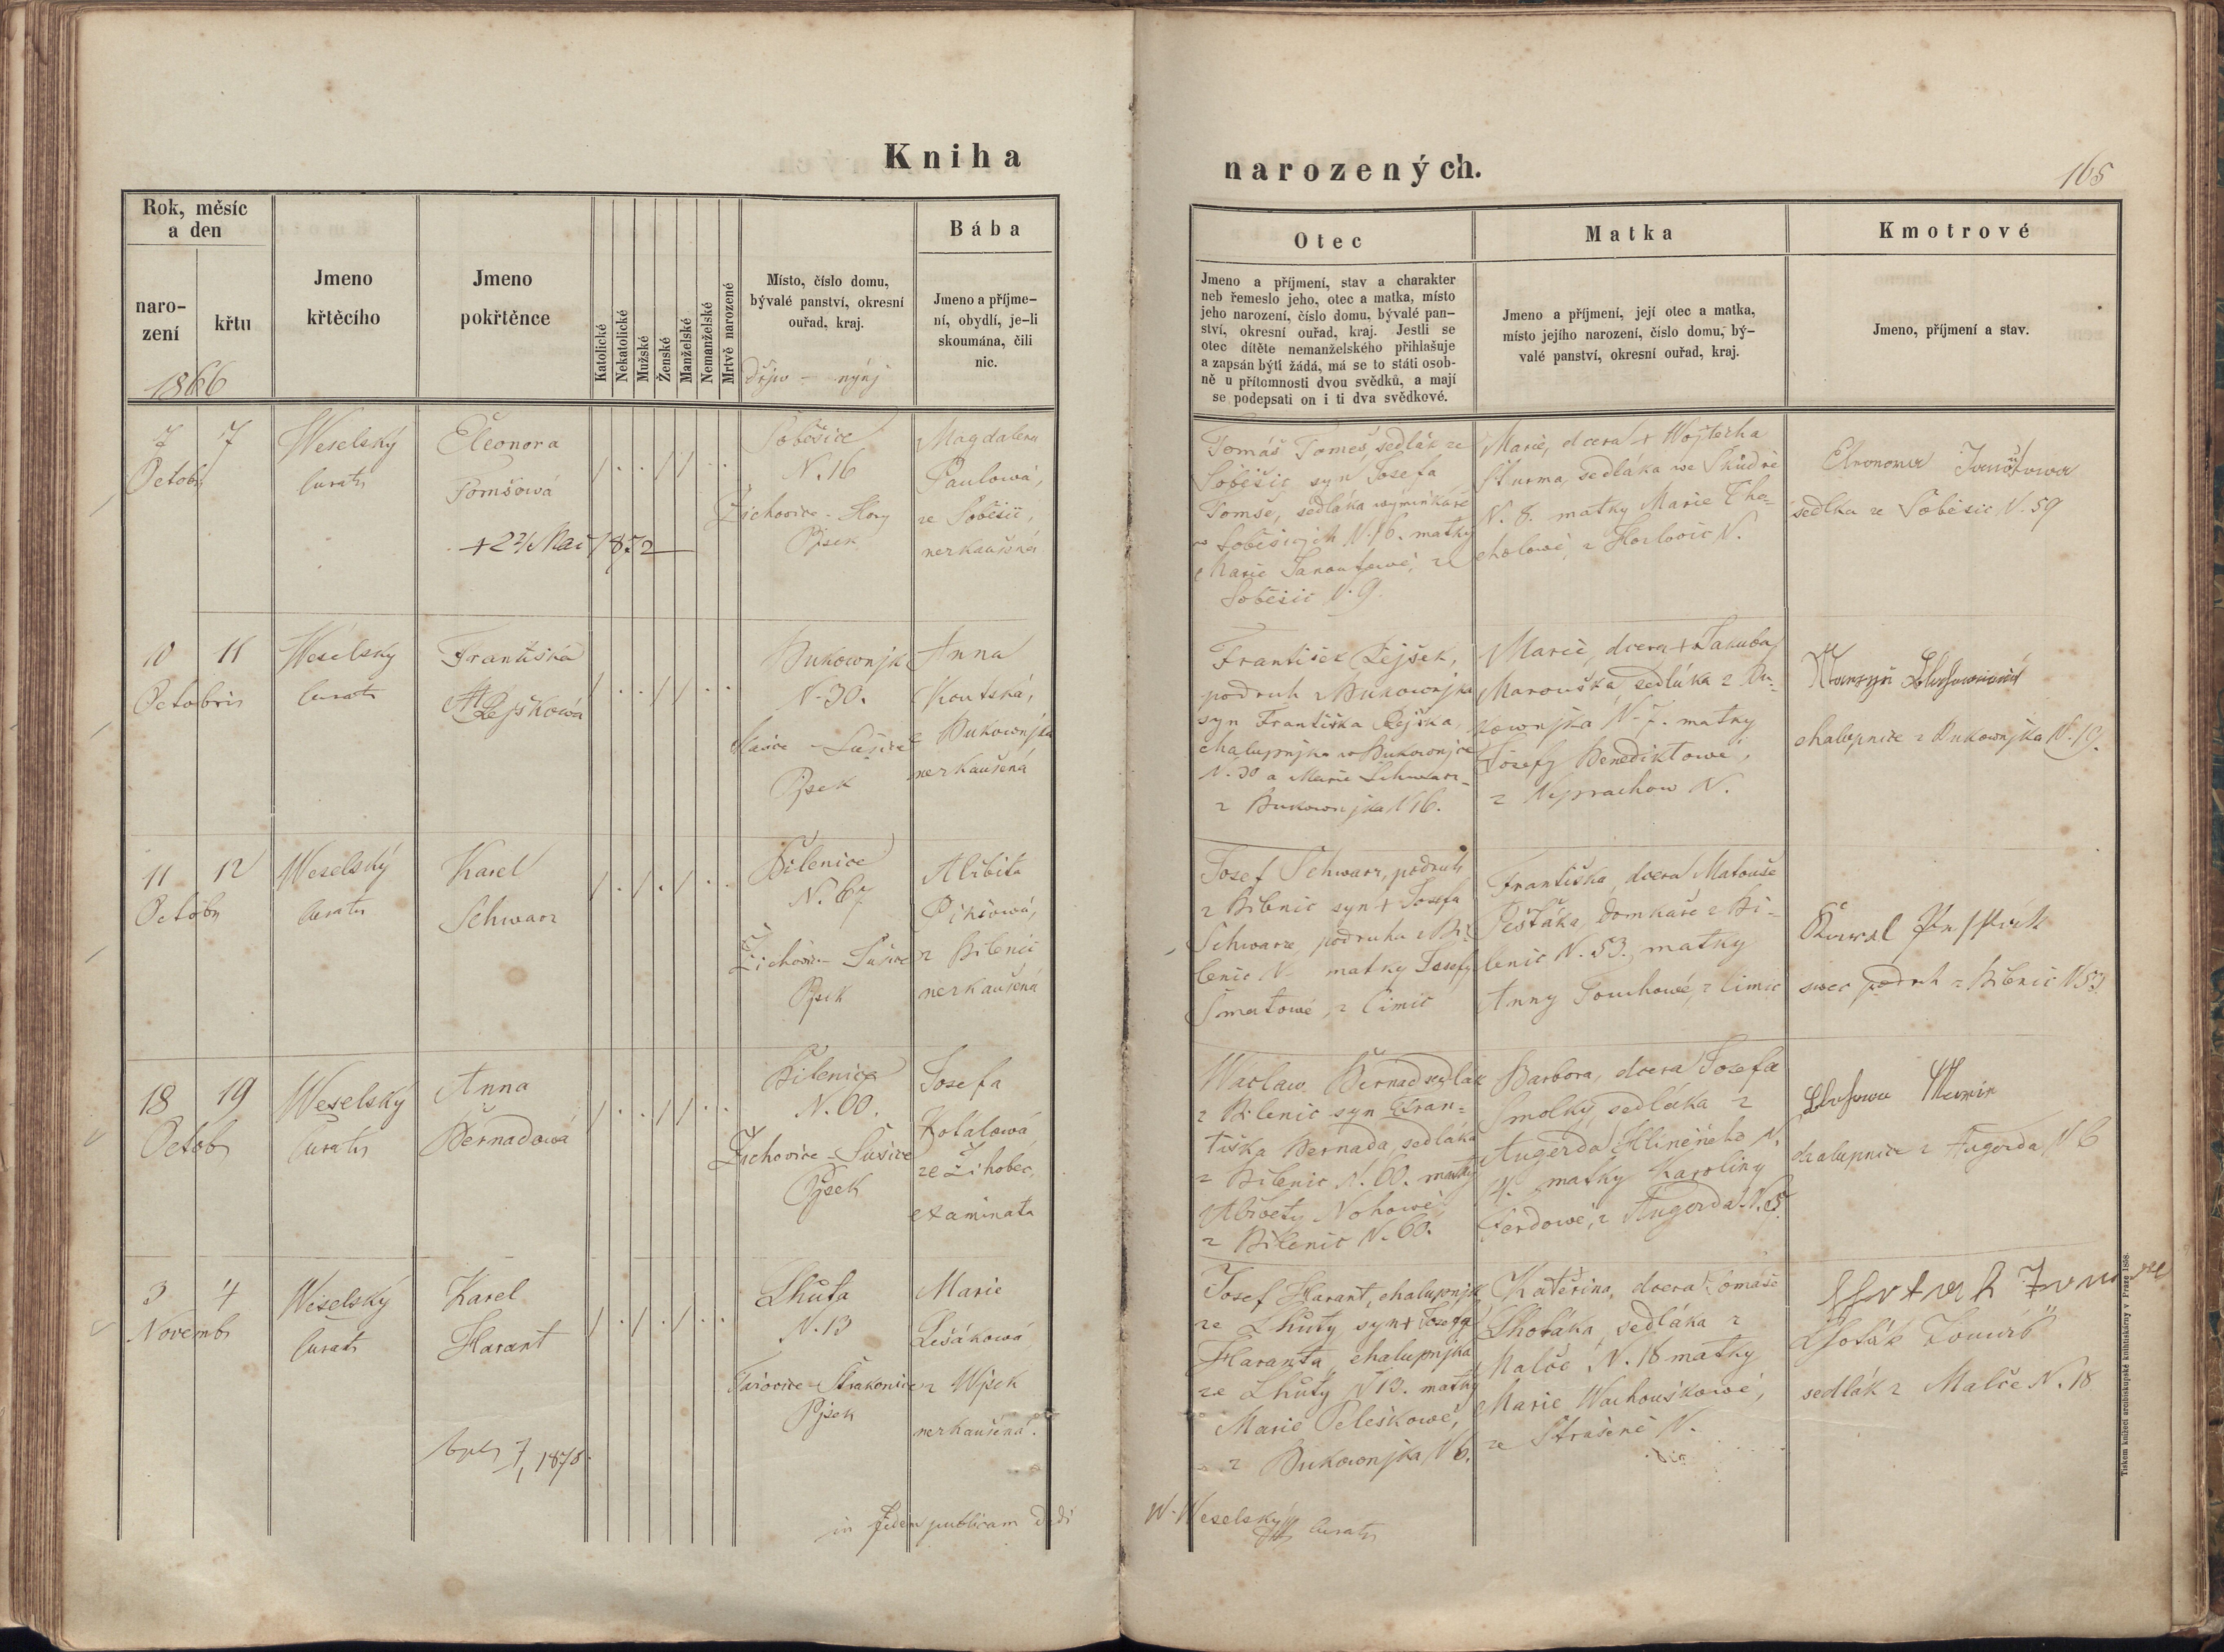 Kniha
narozených.
165
Rok, měsíc
a den
naro-
zení
křtu
Jmeno
křtěcího
Jmeno
pokřtěnce
Katolické
Nekatolické
Mužské
Ženské
Manželské
Nemanželské
Mrtvě narozené
Místo, číslo domu,
bývalé panství, okresní
ouřad, kraj.
Bába
Jmeno a příjme-
ní, obydlí, je-li
skoumána, čili
nic.
Otec
Jmeno a příjmení, stav a charakter
neb řemeslo jeho, otec a matka, místo
jeho narození, číslo domu, bývalé pan-
ství, okresní ouřad, kraj. Jestli se
otec dítěte nemanželského přihlašuje
a zapsán býti žádá, má se to státi osob-
ně u přítomnosti dvou svědků, a mají
se podepsati on i ti dva svědkové.
Matka
Jmeno a příjmení, její otec a matka,
místo jejího narození, číslo domu, bý-
valé panství, okresní ouřad, kraj.
Kmotrové
Jmeno, příjmení a stav.
1866
dřjw - nynj
7 7
Octobr
Weselský
Curatr
Eleonora
Tomšowá
+ 22/Mai 1872
Soběšice
N. 16
Žichovice - Hory
Pjsek
Magdalena
Paulowá,
ze Soběšic,
nezkaušená
Tomáš Tomeš, sedlák ze
Soběšic syn Josefa
Tomše, sedláka wýminkáře
w Soběšicjch N. 16. matky
Marie Janoušowé, z
Soběšic N. 9.
Marie, dcera + Wojtěcha
Šturma, sedláka we
N. 8. matky Marie
z N.
sedlka ze Soběšic N. 59
10 11
Octobris
Weselský
Curatr
Františka
Pejškowá
Bukownjk
N. 30.
- Sušice
Pjsek
Anna
Koutská,
Bukownjka
nezkaušená
František Pejšek,
podruh z Bukownjka
syn Františka Pejška,
chalupnjka w Bukownjce
N. 30 a Marie Schwarz-
z Bukownjka N 16.
Marie, dcera + Jakuba
Marouška sedláka z Bu-
kownjka N. 7. matky
Josefy Benediktowé,
z Neprachow N.
chalupnice z Bukownjka N. 19.
11 12
Octobr
Weselský
Curatr
Karel
Schwarz
Bilenice
N. 67
Žichovice - Sušice
Pjsek
Alžběta
z Bilenic
nezkaušená
Josef Schwarz, podruh
z Bilenic syn + Josefa
Schwarze, podruha z Bi-
lenic N. matky Josefy
Šmatowé, z Čimic
Františka, dcera Matouše
Pešťáka, domkáře z Bi-
lenic N. 53., matky
Anny Souchowé, z Čimic
podruh z Bilenic N 53.
18 19
Octob
Weselský
Curatr
Anna
Bernadowá
Bilenice
N. 60.
Žichovice - Sušice
Pjsek
Josefa
Kotalowá
ze Žihobec,
examinata
Waclaw Bernad sedlák
z Bilenic syn Fran-
tiška Bernada, sedláka
z Bilenic N. 60. matky
Alžběty Nohowé,
z Bilenic N. 60.
Barbora, dcera Josefa
Smolky, sedláka z
Augezda Hliněného N.
4. matky Karoliny
Ferdowé, z Augezda N. 5.
chalupnice z Augezda N 6
3 4
Novembr
Weselský
Curatr
Karel
Harant
7/1 1878.
Lhůta
N. 13
- Strakonice
Pjsek
Marie
Lešákowá
z Wjsek
nezkaušená.
Josef Harant, chalupnjk
ze Lhůty syn + Josefa
Haranta, chalupnjka
ze Lhůty N 13. matky
Marie Peleškowé,
z Bukownjka N 6.
Kateřina, dcera Tomáše
Lhotáka, sedláka z
Malče N. 18 matky
Marie Wachouškowé,
ze Strašeně N.
Lhoták Tomáš
sedlák z Malče N. 18
in fidem publicam dedi
W. Weselský Curatr
Tiskem knížecí arcibiskupské knihtiskárny v Praze 1858.